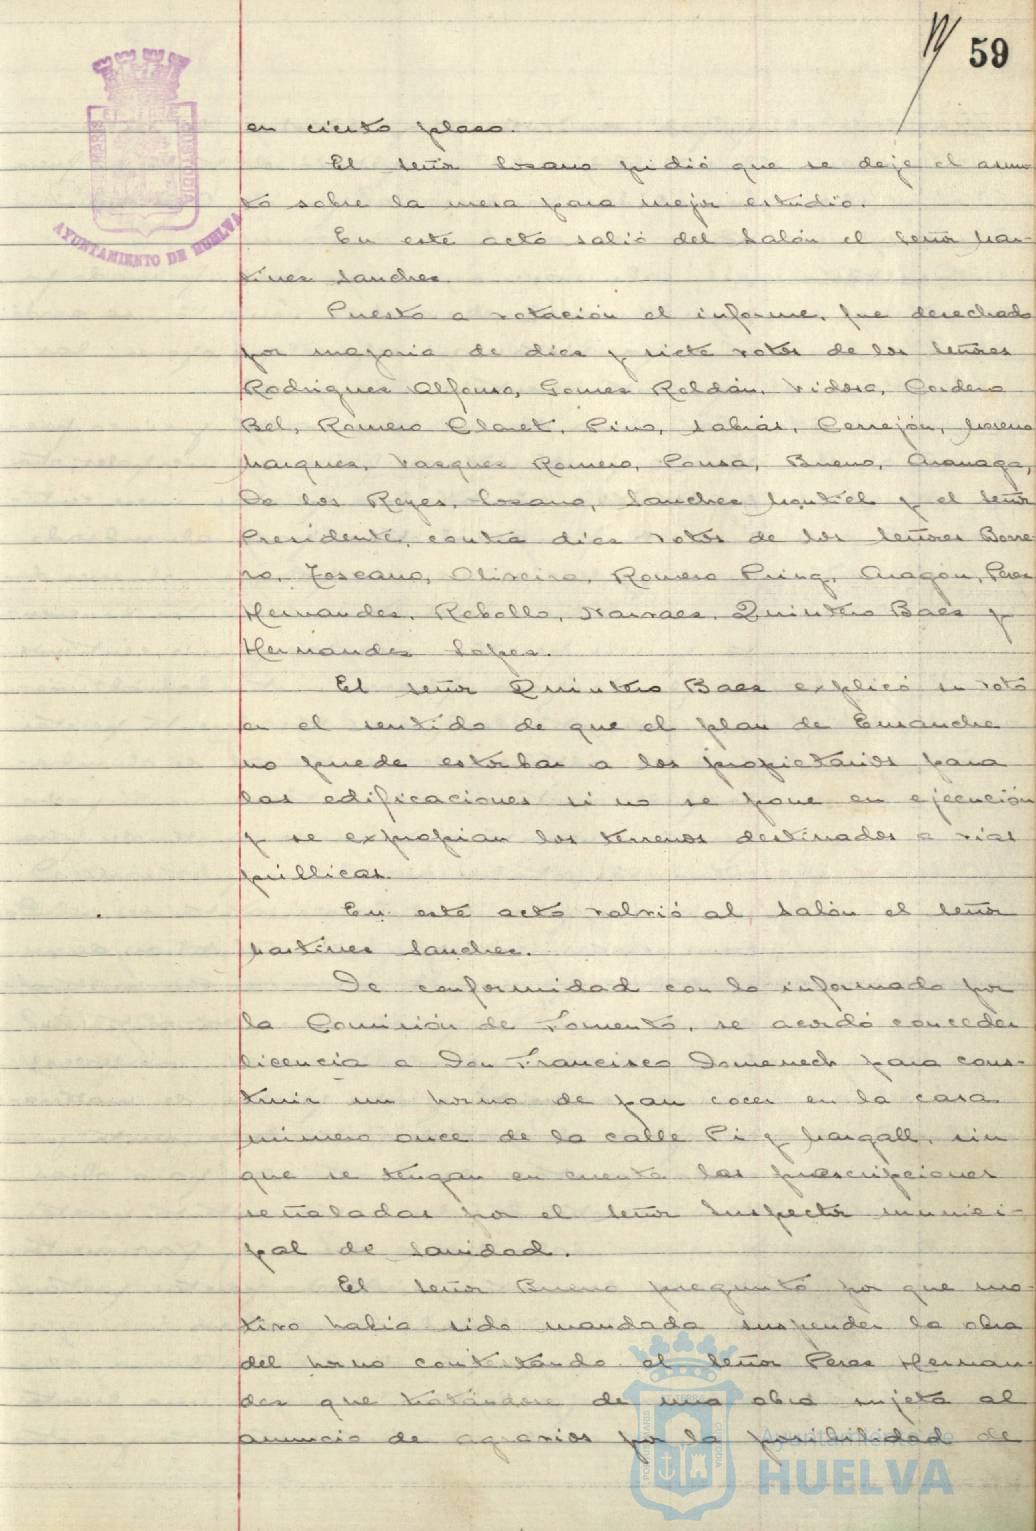 59
en cierto plazo.
El señor Lozano pidió que se deje el asun-
to sobre la mesa para mejor estudio.
En este acto salió del salón el señor Mar-
tinez Sanchez
Puesto a votación el informe, fue desechado
por mayoria de diez y siete votos de los señores
Rodriguez Alfonso, Gomez Roldán, Vidosa, Cordero
Bel, Romero Claret, Pino, Sabrás, Cerrejón, Moreno
Marquez, Vazquez Romero, Ponsa, Bueno, Aranaga,
De los Reyes, Lozano, Sanchez Montiel y el señor
Presidente, contra diez votos de los señores Borre-
ro, Toscano, Oliveira, Romero Puig, Aragón, Perez
Hernandez, Rebollo, Narvaez, Quintero Baez y
Hernandez Lopez.
El señor Quintero Baez explicó su voto
en el sentido de que el plan de Ensanche
no puede estorbar a los propietarios para
las edificaciones si no se pone en ejecución
y se expropian los terrenos destinados a vias
publicas.
En este acto volvió al salón el señor
Martinez Sanchez.
De conformidad con lo informado por
la Comisión de Fomento, se acordó conceder
licencia a Don Francisco Domenech para cons-
truir un horno de pan cocer en la casa
número once de la calle Pi y Margall, sin
que se tengan en cuenta las prescripciones
señaladas por el señor Inspector munici-
pal de Sanidad.
El señor Bueno preguntó por que mo-
tivo habia sido mandada suspender la obra
del horno contestando el señor Perez Hernan-
dez que tratándose de una obra sujeta al
anuncio de agravios por la posibilidad de
AYUNTAMIENTO DE HUELVA
Ayuntamiento de
HUELVA